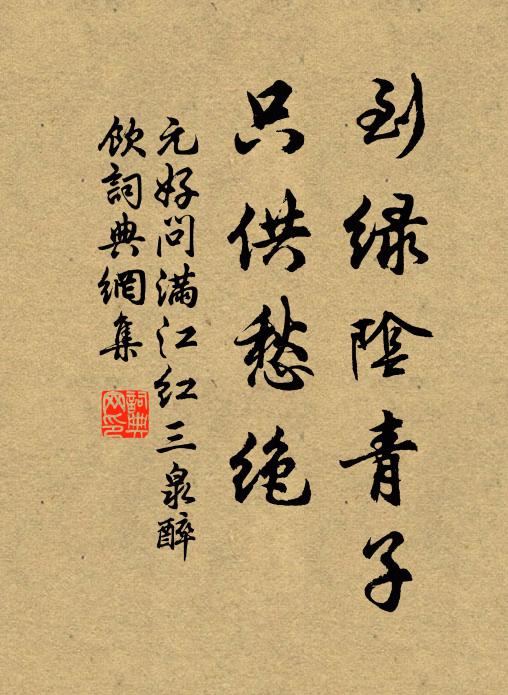 到绿陰青子
只供愁绝
元好问滿江红三泉醉
飲詞典網集
詞典
网印